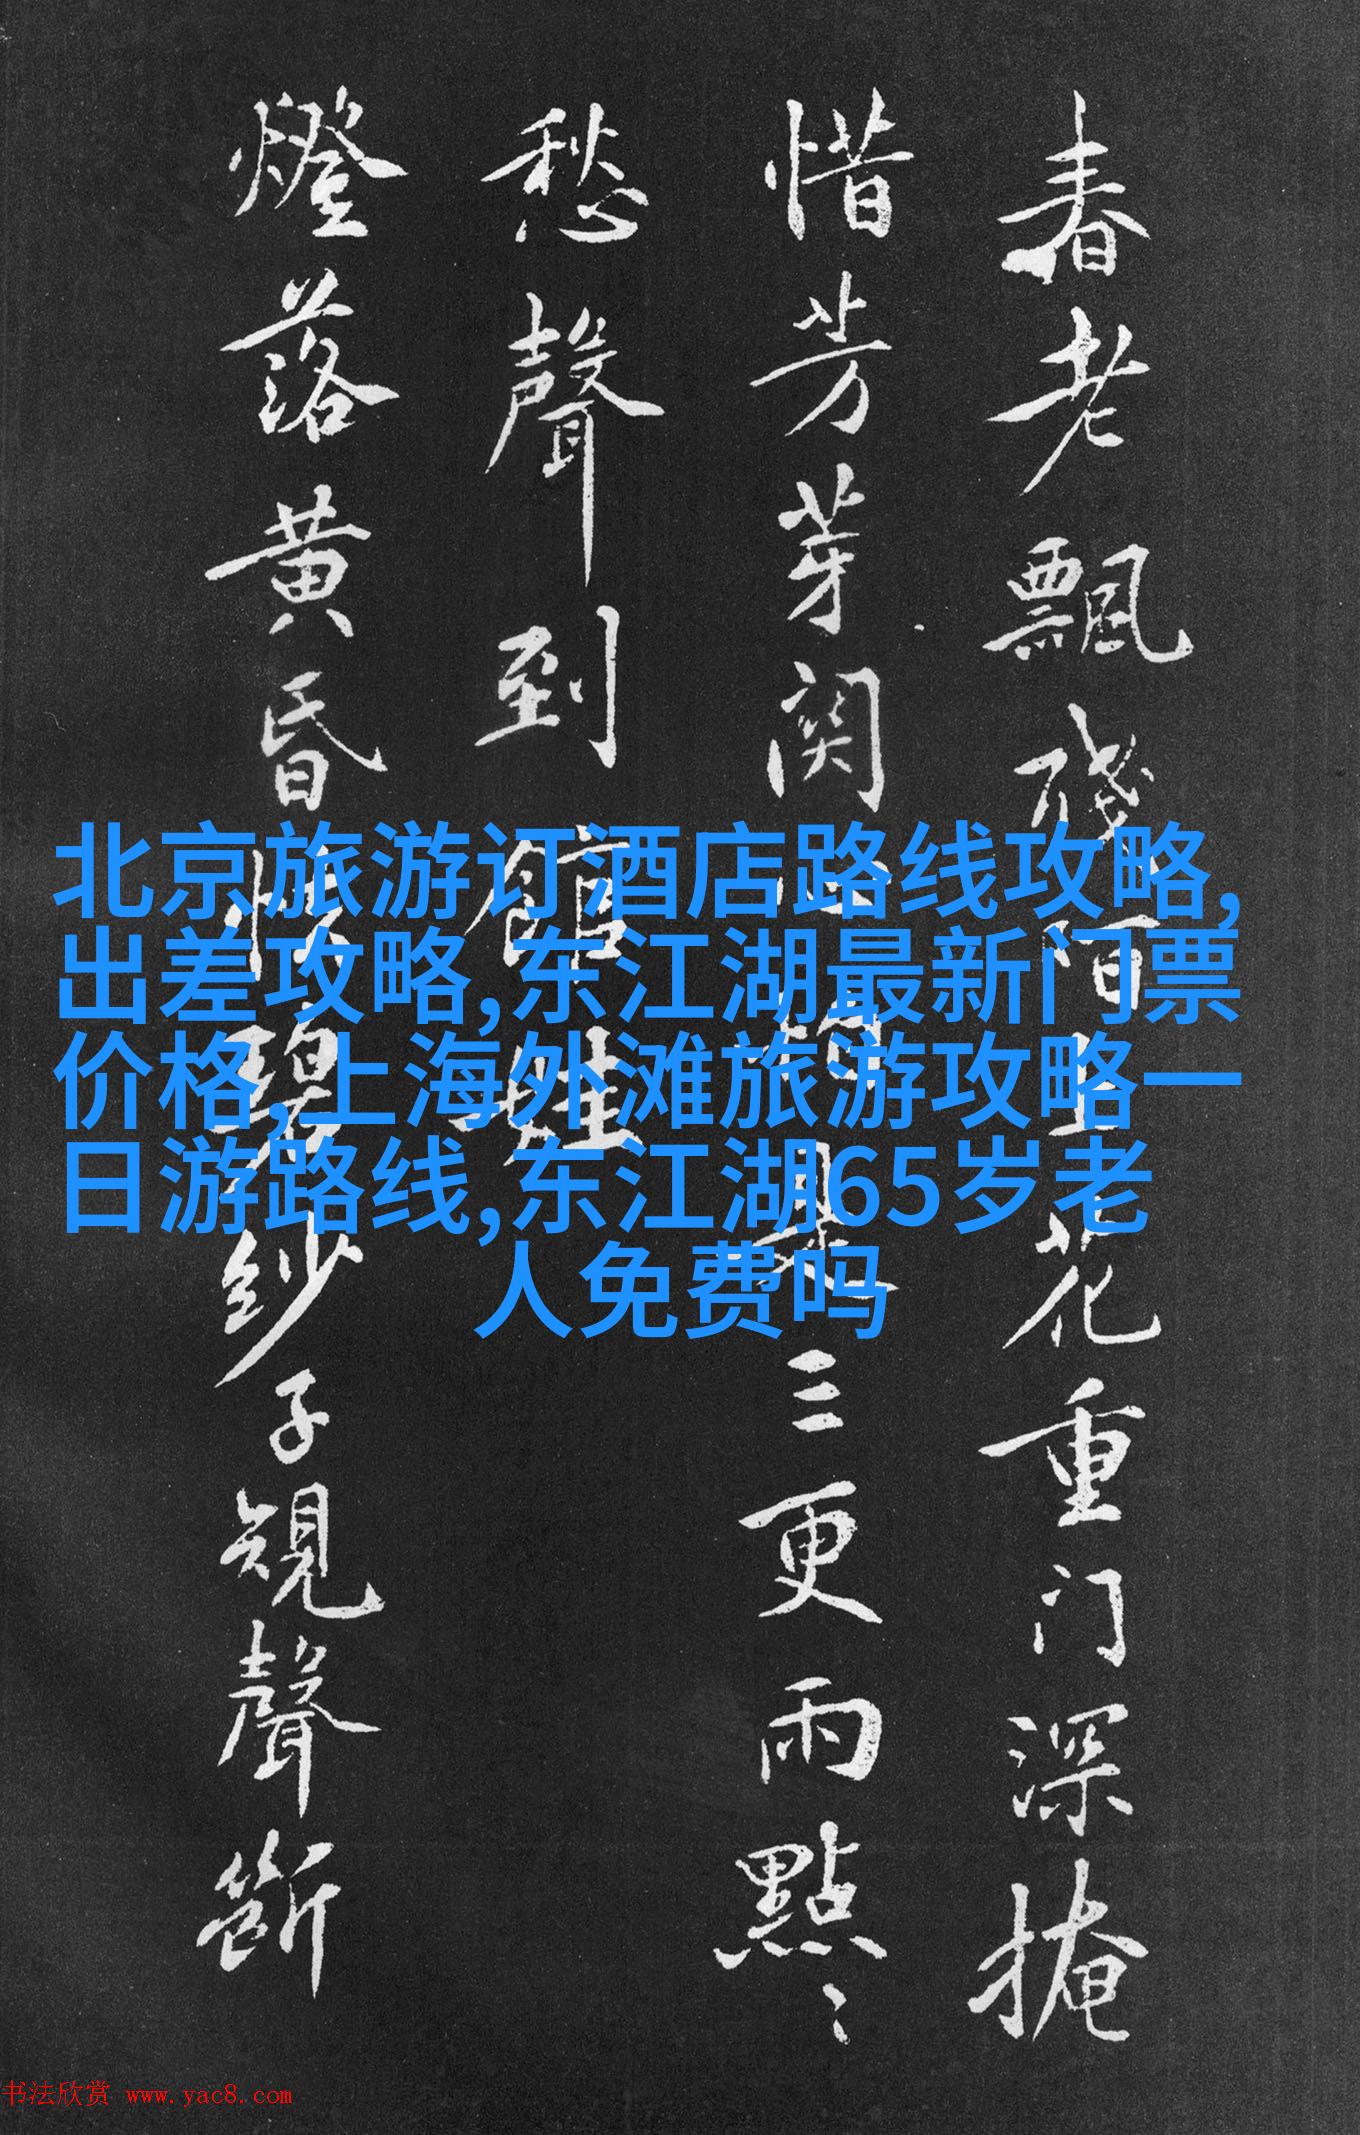 春老飄殘階上花重门深掩
惜芳芽関心約是三更雨點〻
愁聲到館娃
燈落黄昏悵碧紗子規聲斷
北京旅游订酒店路线攻略,
出差攻略,东江湖最新门票
价格,上海外滩旅游攻略一
日游路线,东江湖65岁老
人免费吗
书法欣赏 www.yac8.com